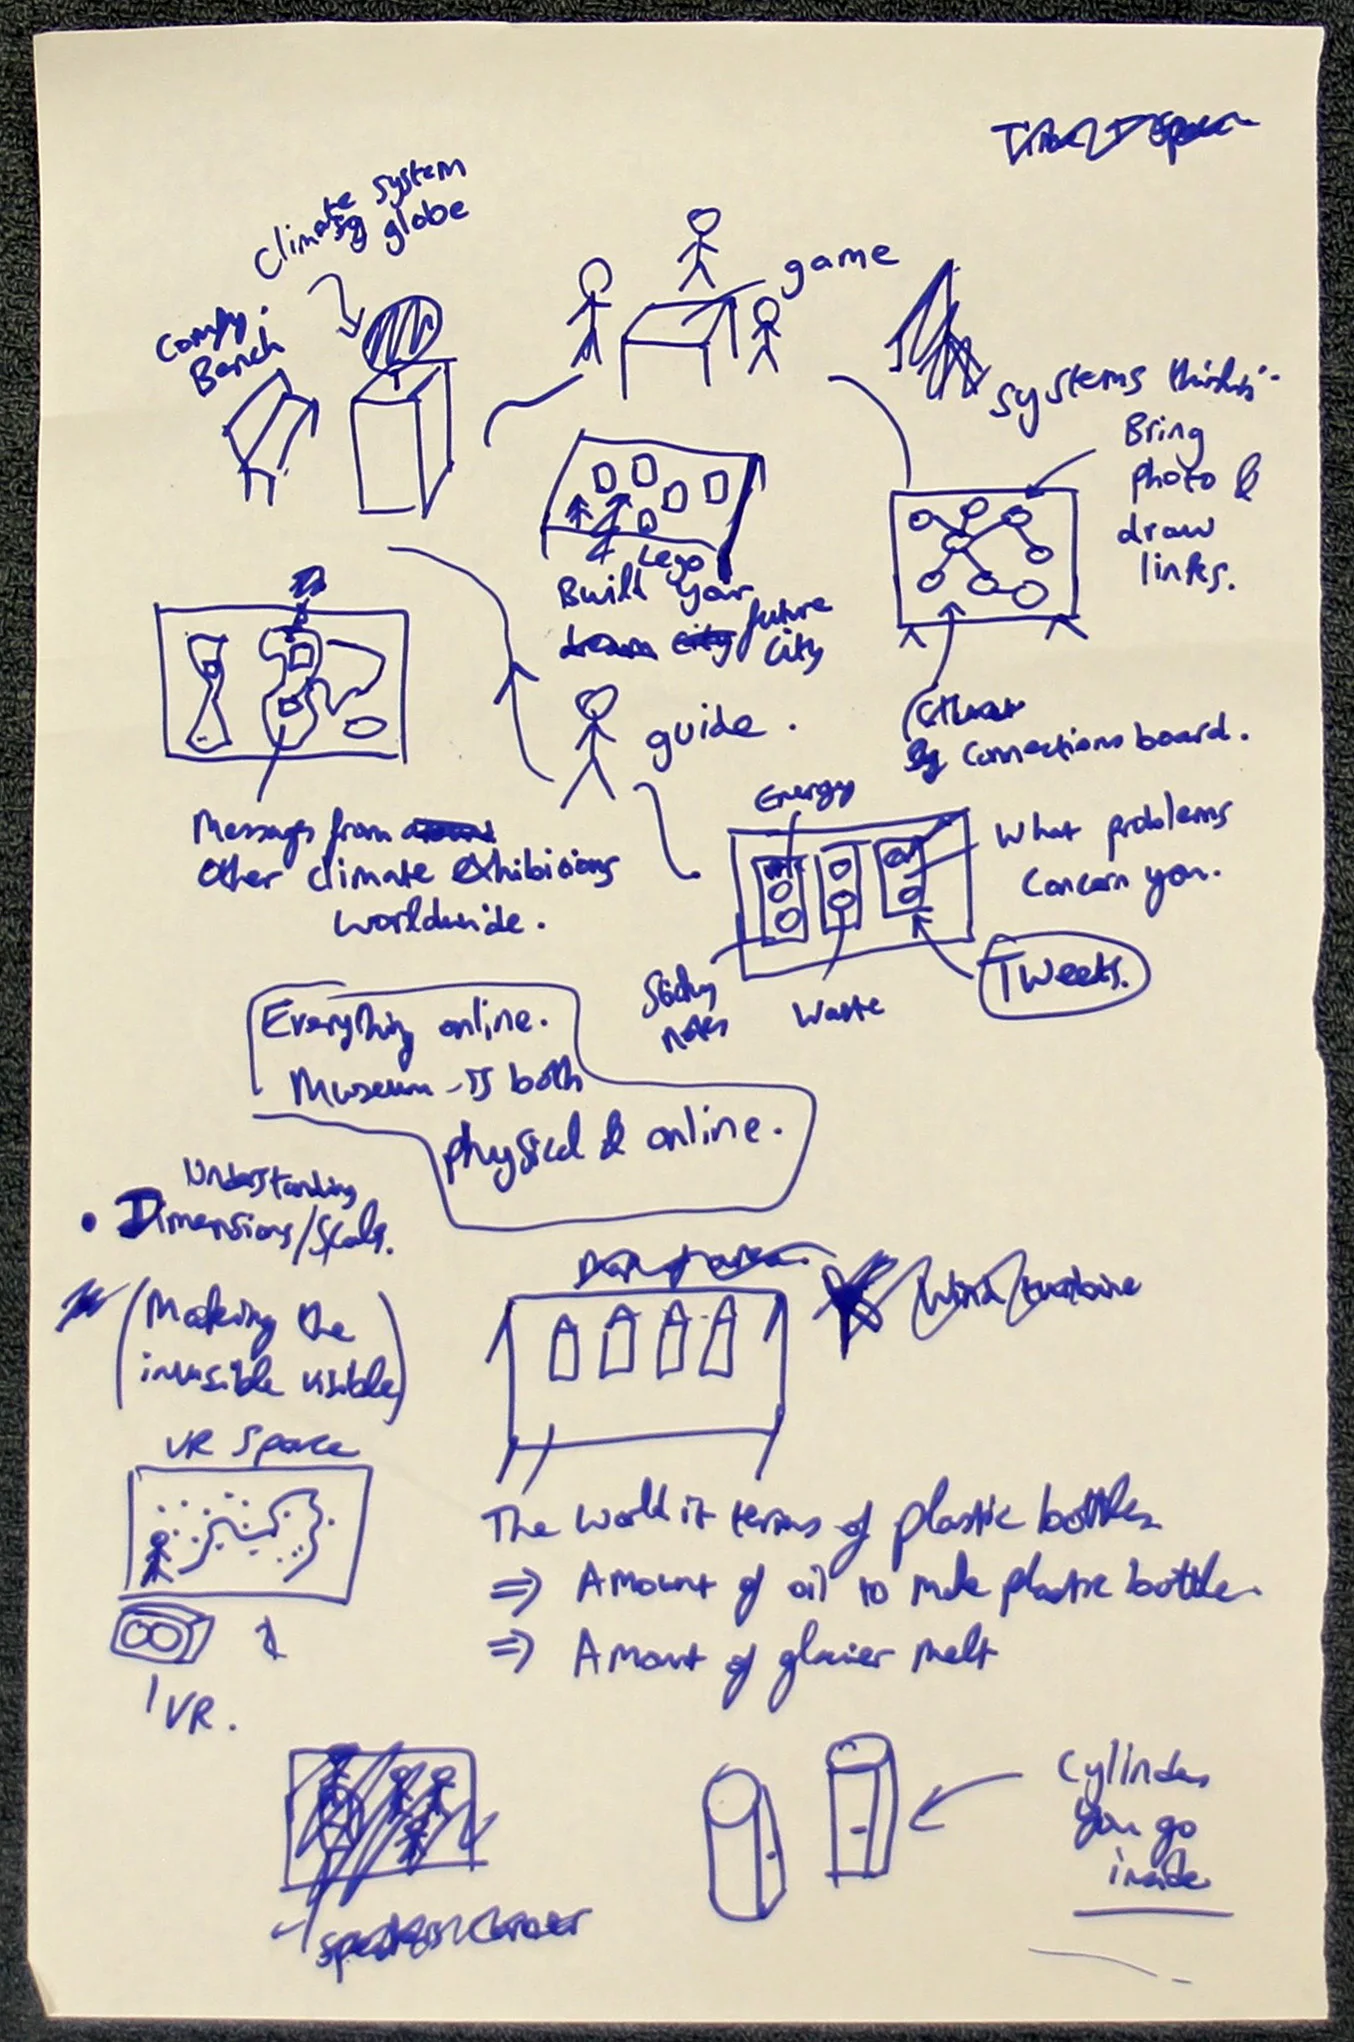 Climate system
globe
Comfy
Bench
game
systems
Bring
photo &
draw
links.
Lego
Build your
dream city future
city
guide.
Connections board.
Messages from
other climate exhibitions
worldwide.
Energy
What problems
concern you.
Tweets.
Sticky
notes
Waste
Everything online.
Museum is both
physical & online.
Understanding
• Dimensions/Scale.
(Making the
invisible visible)
Wind turbine
VR Space
The world in terms of plastic bottles
⇒ Amount of oil to make plastic bottle.
⇒ Amount of glacier melt
VR.
Speakers corner
Cylinders
you go
inside